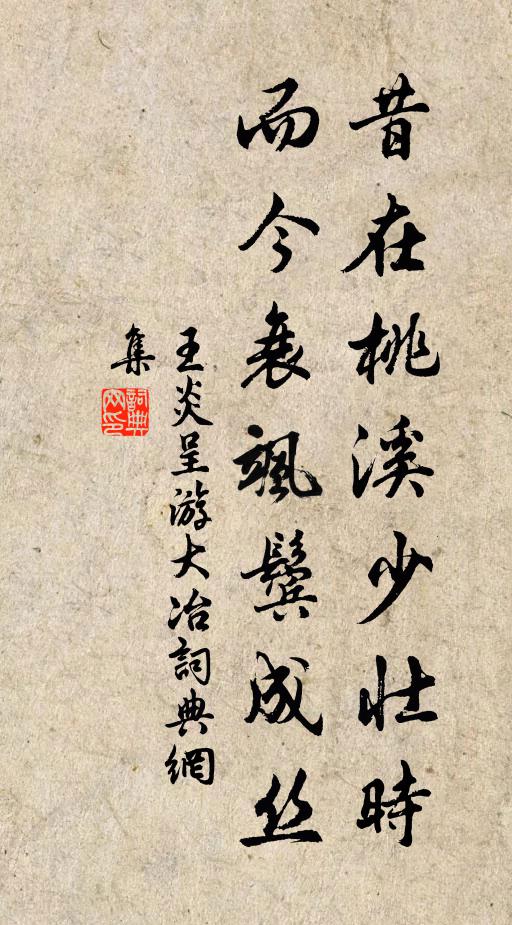 昔在桃溪少壮時
而今衰颯鬓成丝
王炎呈游大冶詞典網
集
詞典網印